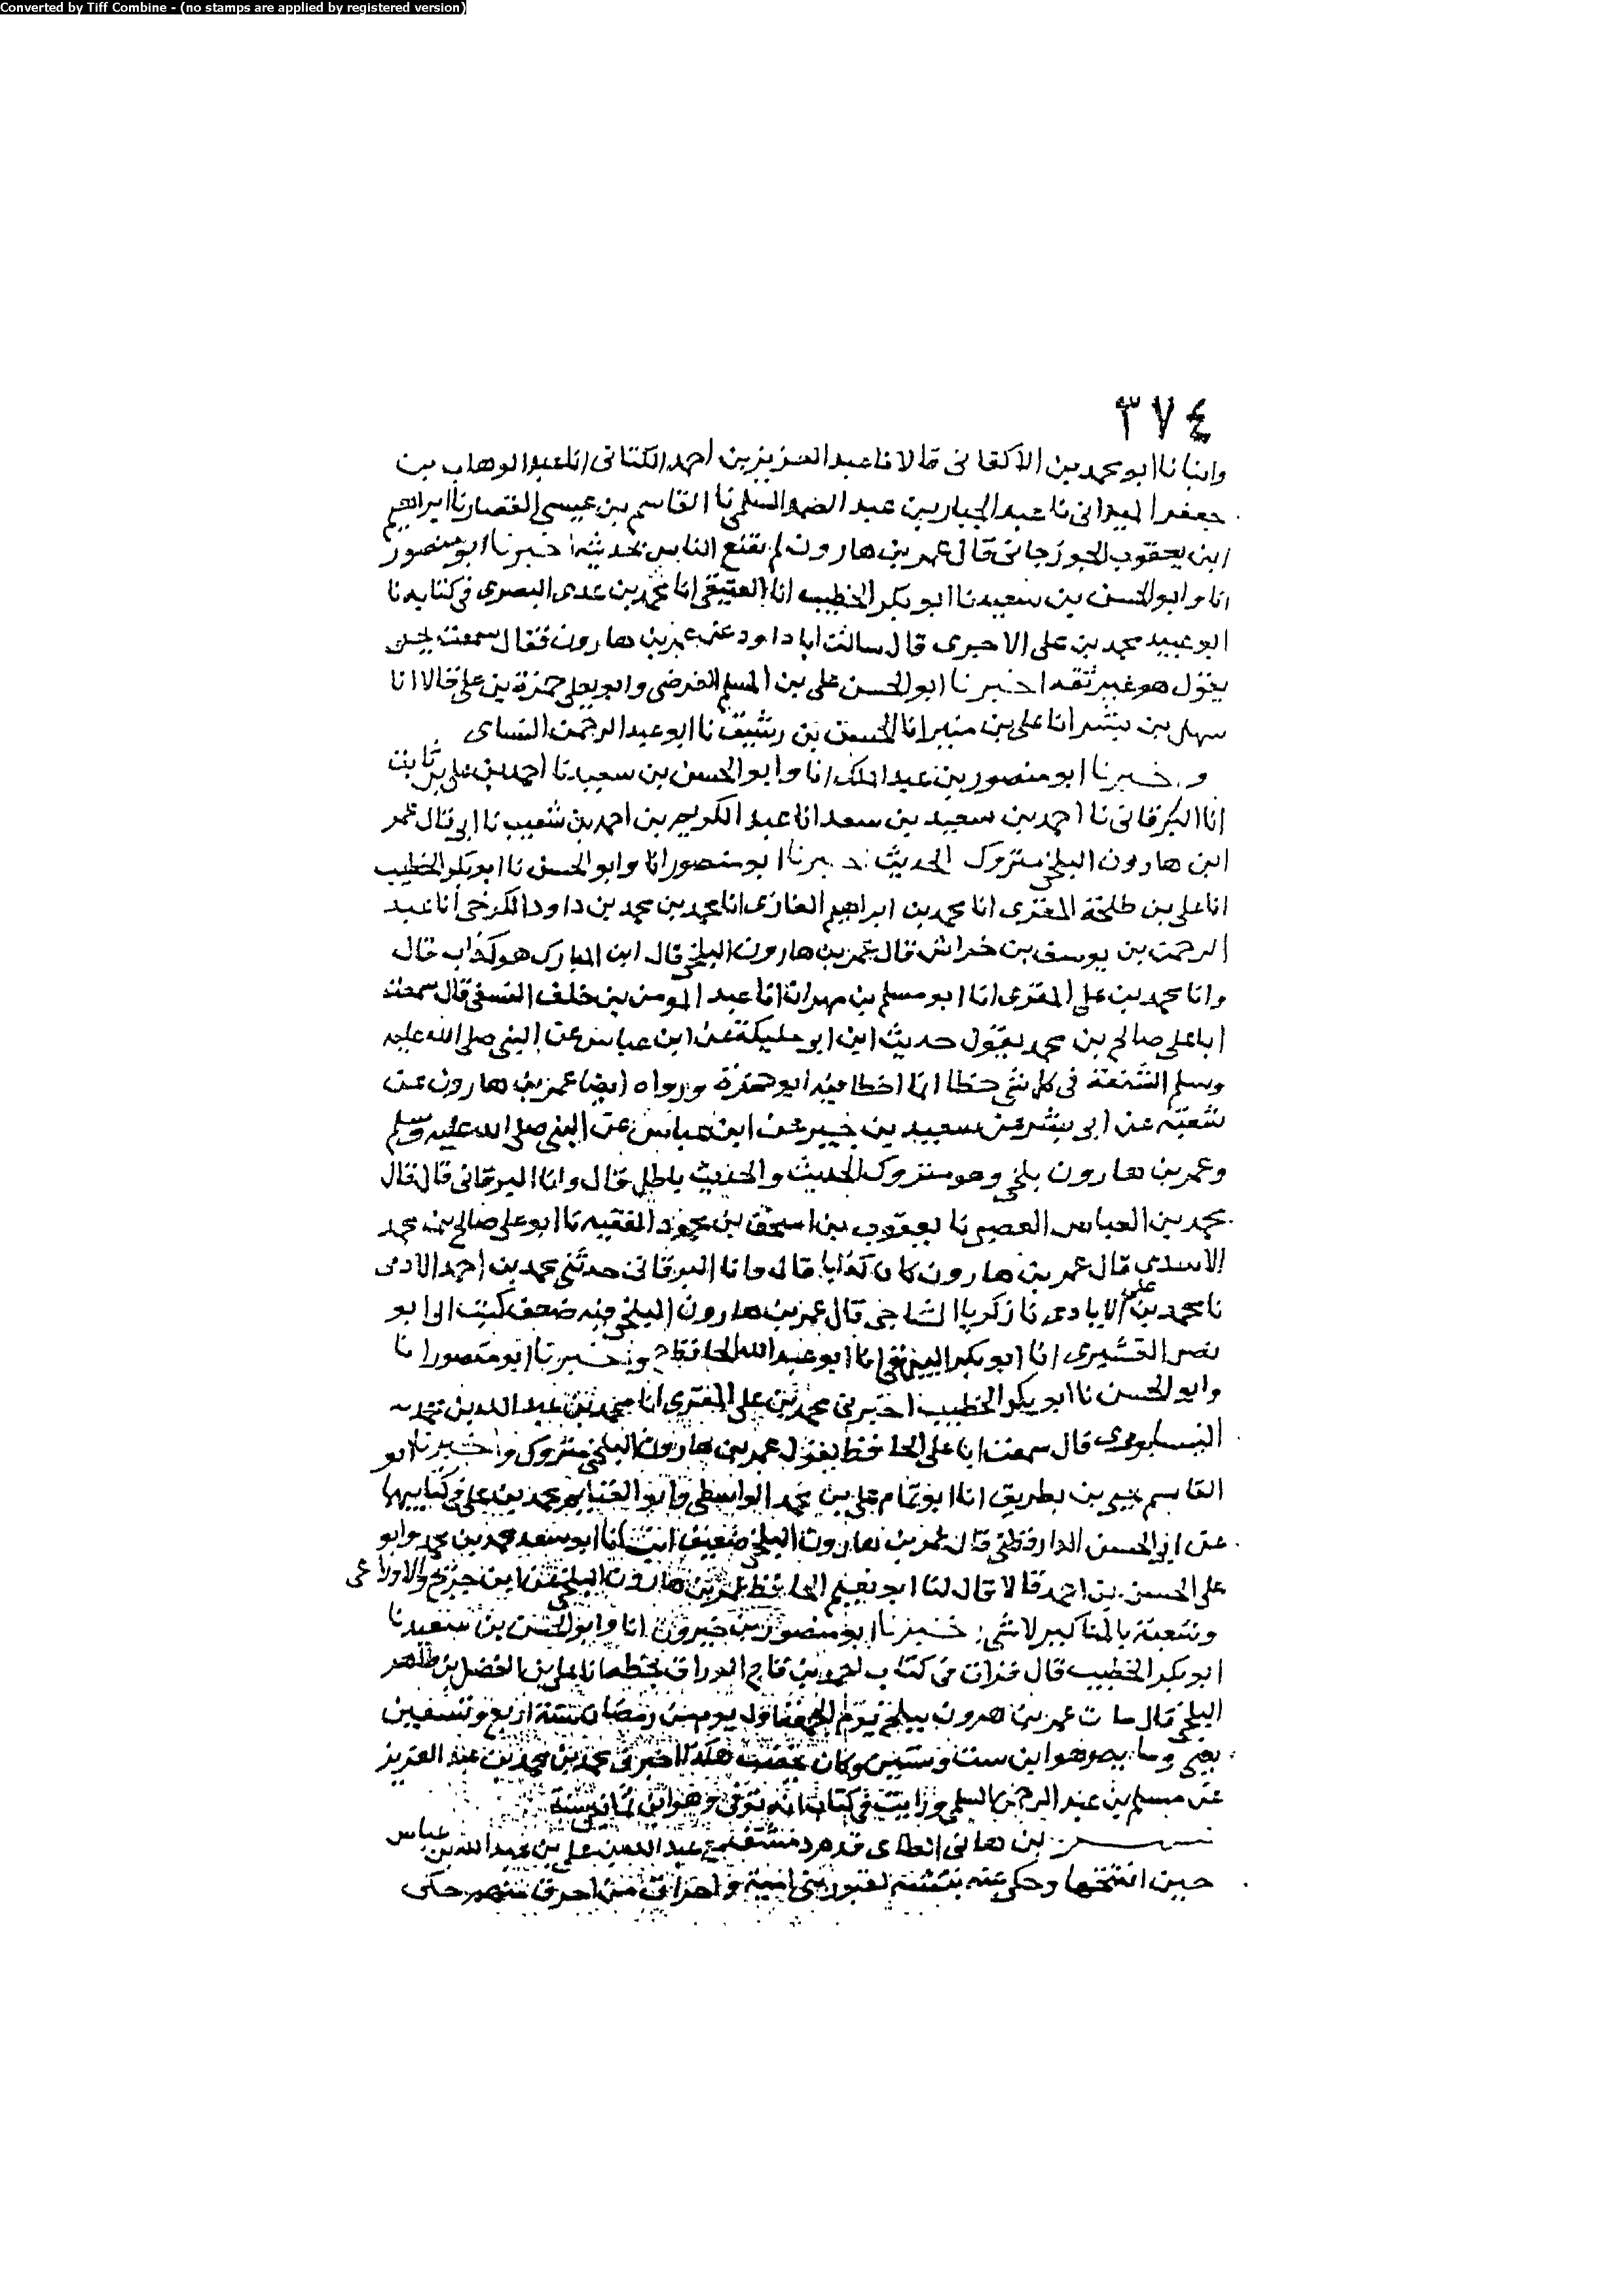 Converted by Tiff Combine - (no stamps are applied by registered version)
٣٧٤
وانبا ناابو محمد بن الاكفانى قالا نا عبد العزيز بن احمد الكتانى انا عبد الوهاب بن
جعفر الميدانى نا عبد الجبار بن عبد الصمد السلمى نا القاسم بن عيسى القصار نا ابراهيم
ابن يعقوب الجوزجانى قال عمر بن هارون لم يقنع الناس بحديثه اخبرنا ابو منصور
انا وابو الحسن بن سعيد نا ابو بكر الخطيب انا العتيقى انا محمد بن عدى البصرى فى كتابه نا
ابو عبيد محمد بن على الاجرى قال سالت ابا داود عن عمر بن هارون فقال سمعت يحيى
يقول هو غير ثقه اخبرنا ابو الحسن على بن المسلم الفرضى وابو يعلى حمزة بن على قالا انا
سهل بن بشر انا على بن منير انا الحسن بن رشيق نا ابو عبد الرحمن النساى
و خبرنا ابو منصور بن عبد الملك انا وابو الحسن بن سعيد نا احمد بن على بن ثابت
انا البرقانى نا احمد بن سعيد بن سعد انا عبد الكريم بن احمد بن شعيب نا ابى قال عمر
ابن هارون البلخى متروك الحديث خبرنا ابو منصور انا وابو الحسن نا ابو بكر الخطيب
انا على بن طلحة المقرى انا محمد بن ابراهيم الغازى انا محمد بن محمد بن داود الكرخى انا عبد
الرحمن بن يوسف بن خراش قال عمر بن هارون البلخى قال ابن المبارك هو كذاب قال
وانا محمد بن على المقرى انا ابو مسلم بن مهران انا عبد المومن بن خلف النسفى قال سمعت
ابا على صالح بن محمد يقول حديث ابن ابو مليكة عن ابن عباس عن النبى صلى الله عليه
وسلم الشفعة فى كل شى خطا انا اخطا فيه ابو حمزة ورواه ايضا عمر بن هارون عن
شعبة عن ابى بشر عن سعيد بن جبير عن ابن عباس عن النبى صلى الله عليه وسلم
وعمر بن هارون بلخى وهو متروك الحديث والحديث باطل قال وانا البرقانى قال قال
محمد بن العباس العصمى نا يعقوب بن اسحق بن محمود الفقيه نا ابو على صالح بن محمد
الاسدى قال عمر بن هارون كان كذابا قال وانا البرقانى حدثنى محمد بن احمد الادمى
نا محمد بن على الايادى نا زكريا الساجى قال عمر بن هارون البلخى فيه ضعف كتب الى ابو
نصر القشيرى انا ابو بكر البيهقى انا ابو عبد الله الحافظ ح و خبرنا ابو منصور انا
وابو الحسن نا ابو بكر الخطيب اخبرنى محمد بن على المقرى انا محمد بن عبد الله بن محمد
النيسابورى قال سمعت ابا على الحافظ يقول عمر بن هارون البلخى متروك واخبرنا ابو
القاسم يحيى بن بطريق انا ابو تمام على بن محمد الواسطى وابو الغنايم محمد بن على فى كتابيهما
عن ابى الحسن الدارقطنى قال عمر بن هارون البلخى ضعيف انا ابو سعد محمد بن محمد وابو
على الحسن بن احمد قالا قال لنا ابو نعيم الحافظ عمر بن هارون البلخى عن ابن جريج والاوزاعى
وشعبة بالمناكير لا شى خبرنا ابو منصور بن خيرون انا وابو الحسن بن سعيد نا
ابو بكر الخطيب قال قرات فى كتاب احمد بن قاج الوراق بخطه انا على بن الفضل بن طاهر
البلخى قال مات عمر بن هرون ببلخ يوم الجمعة اول يوم من رمضان سنة اربع وتسعين
يعنى وما وهو ابن ست وستين وكان يخضب هكذا اخبرنى محمد بن محمد بن عبد العزيز
عن مسلم بن عبد الرحمن السلمى ورايت فى كتاب انه توفى وهو ابن ثمانين سنة
بن هانى الطاى قدم دمشق مع عبد الله بن على بن عبد الله بن عباس
حين افتتحها وحكى عنه نبشه لقبور بنى امية واحراق من احرق منهم حكى